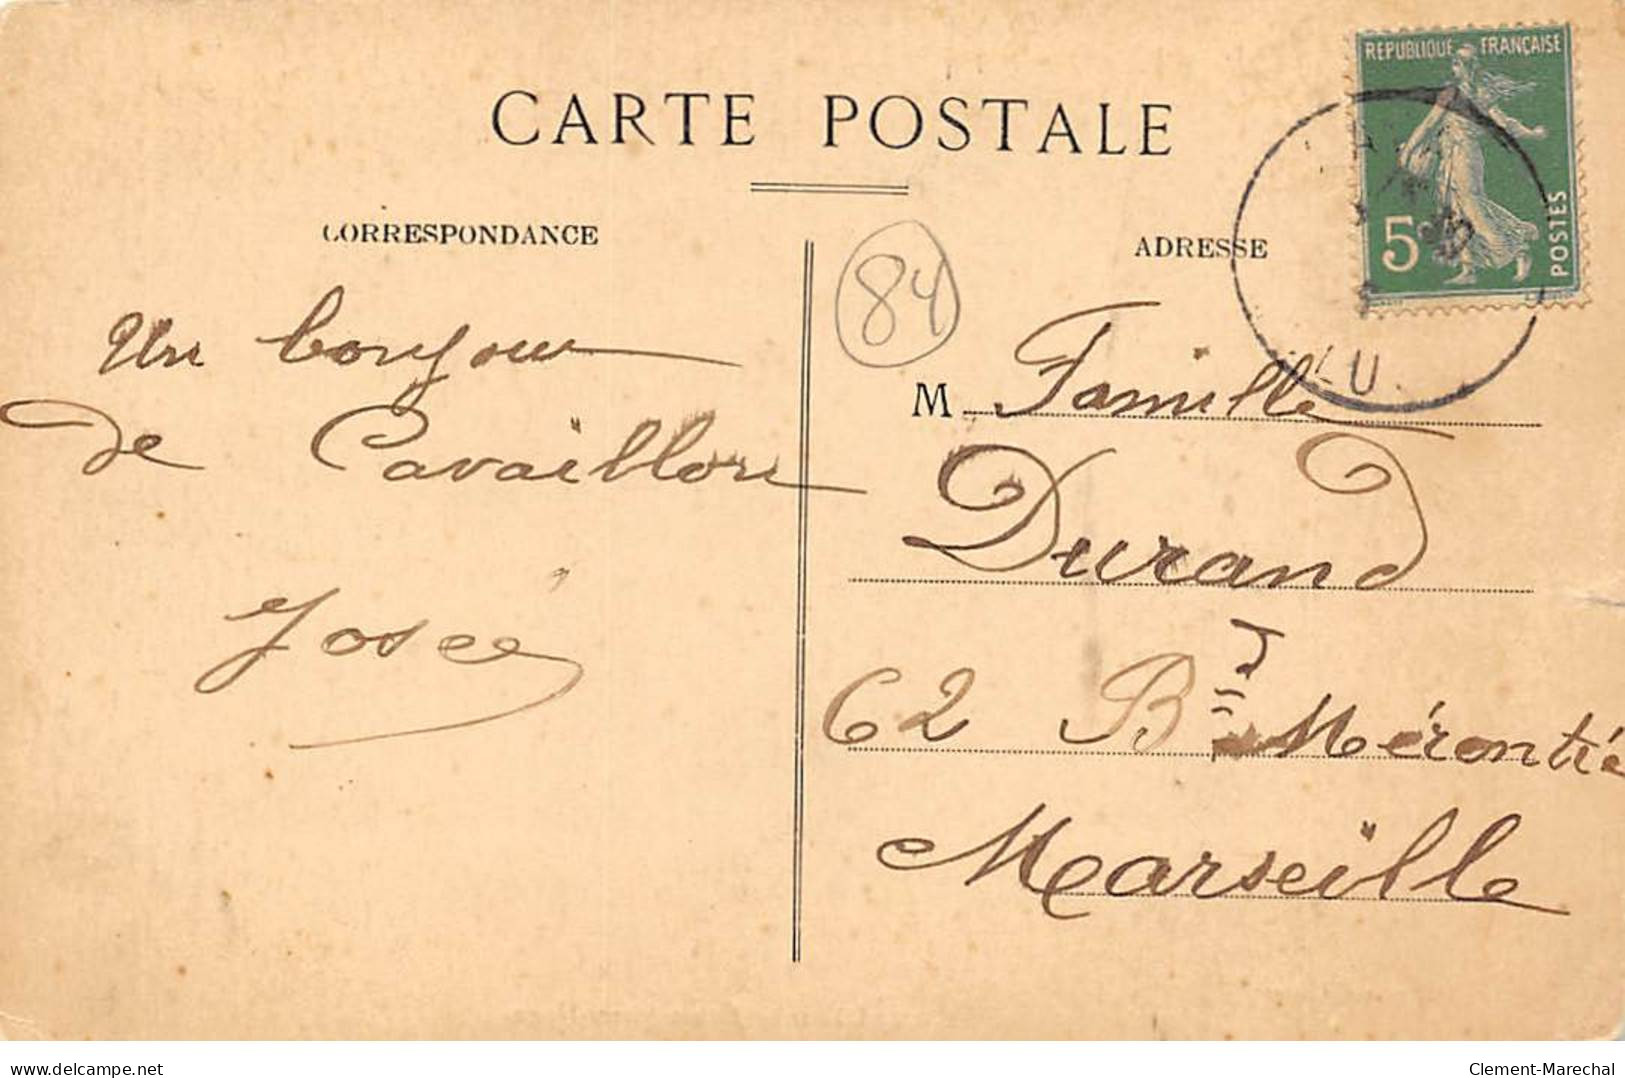 REPUBLIQUE FRANÇAISE
5c
POSTES
CARTE POSTALE
CORRESPONDANCE
ADRESSE
84
Un bonjour
de Cavaillon
José
M Famille
Durand
62 Bd Mérentié
Marseille
delcampe.net
Clement-Marechal